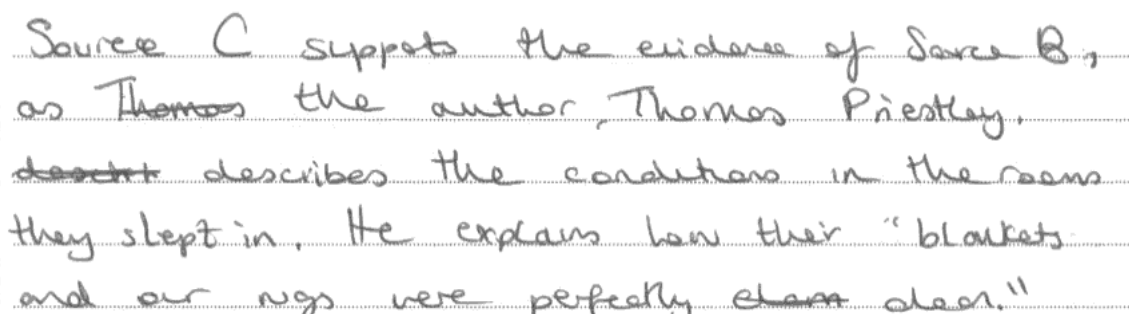 Source C suppots the evidence of Source B,
as ~~Thomas~~ the author, Thomas Priestley,
describes the conditions in the rooms
they slept in. He explains how their "blankets
and our rugs were perfectly ~~clean~~ clean."